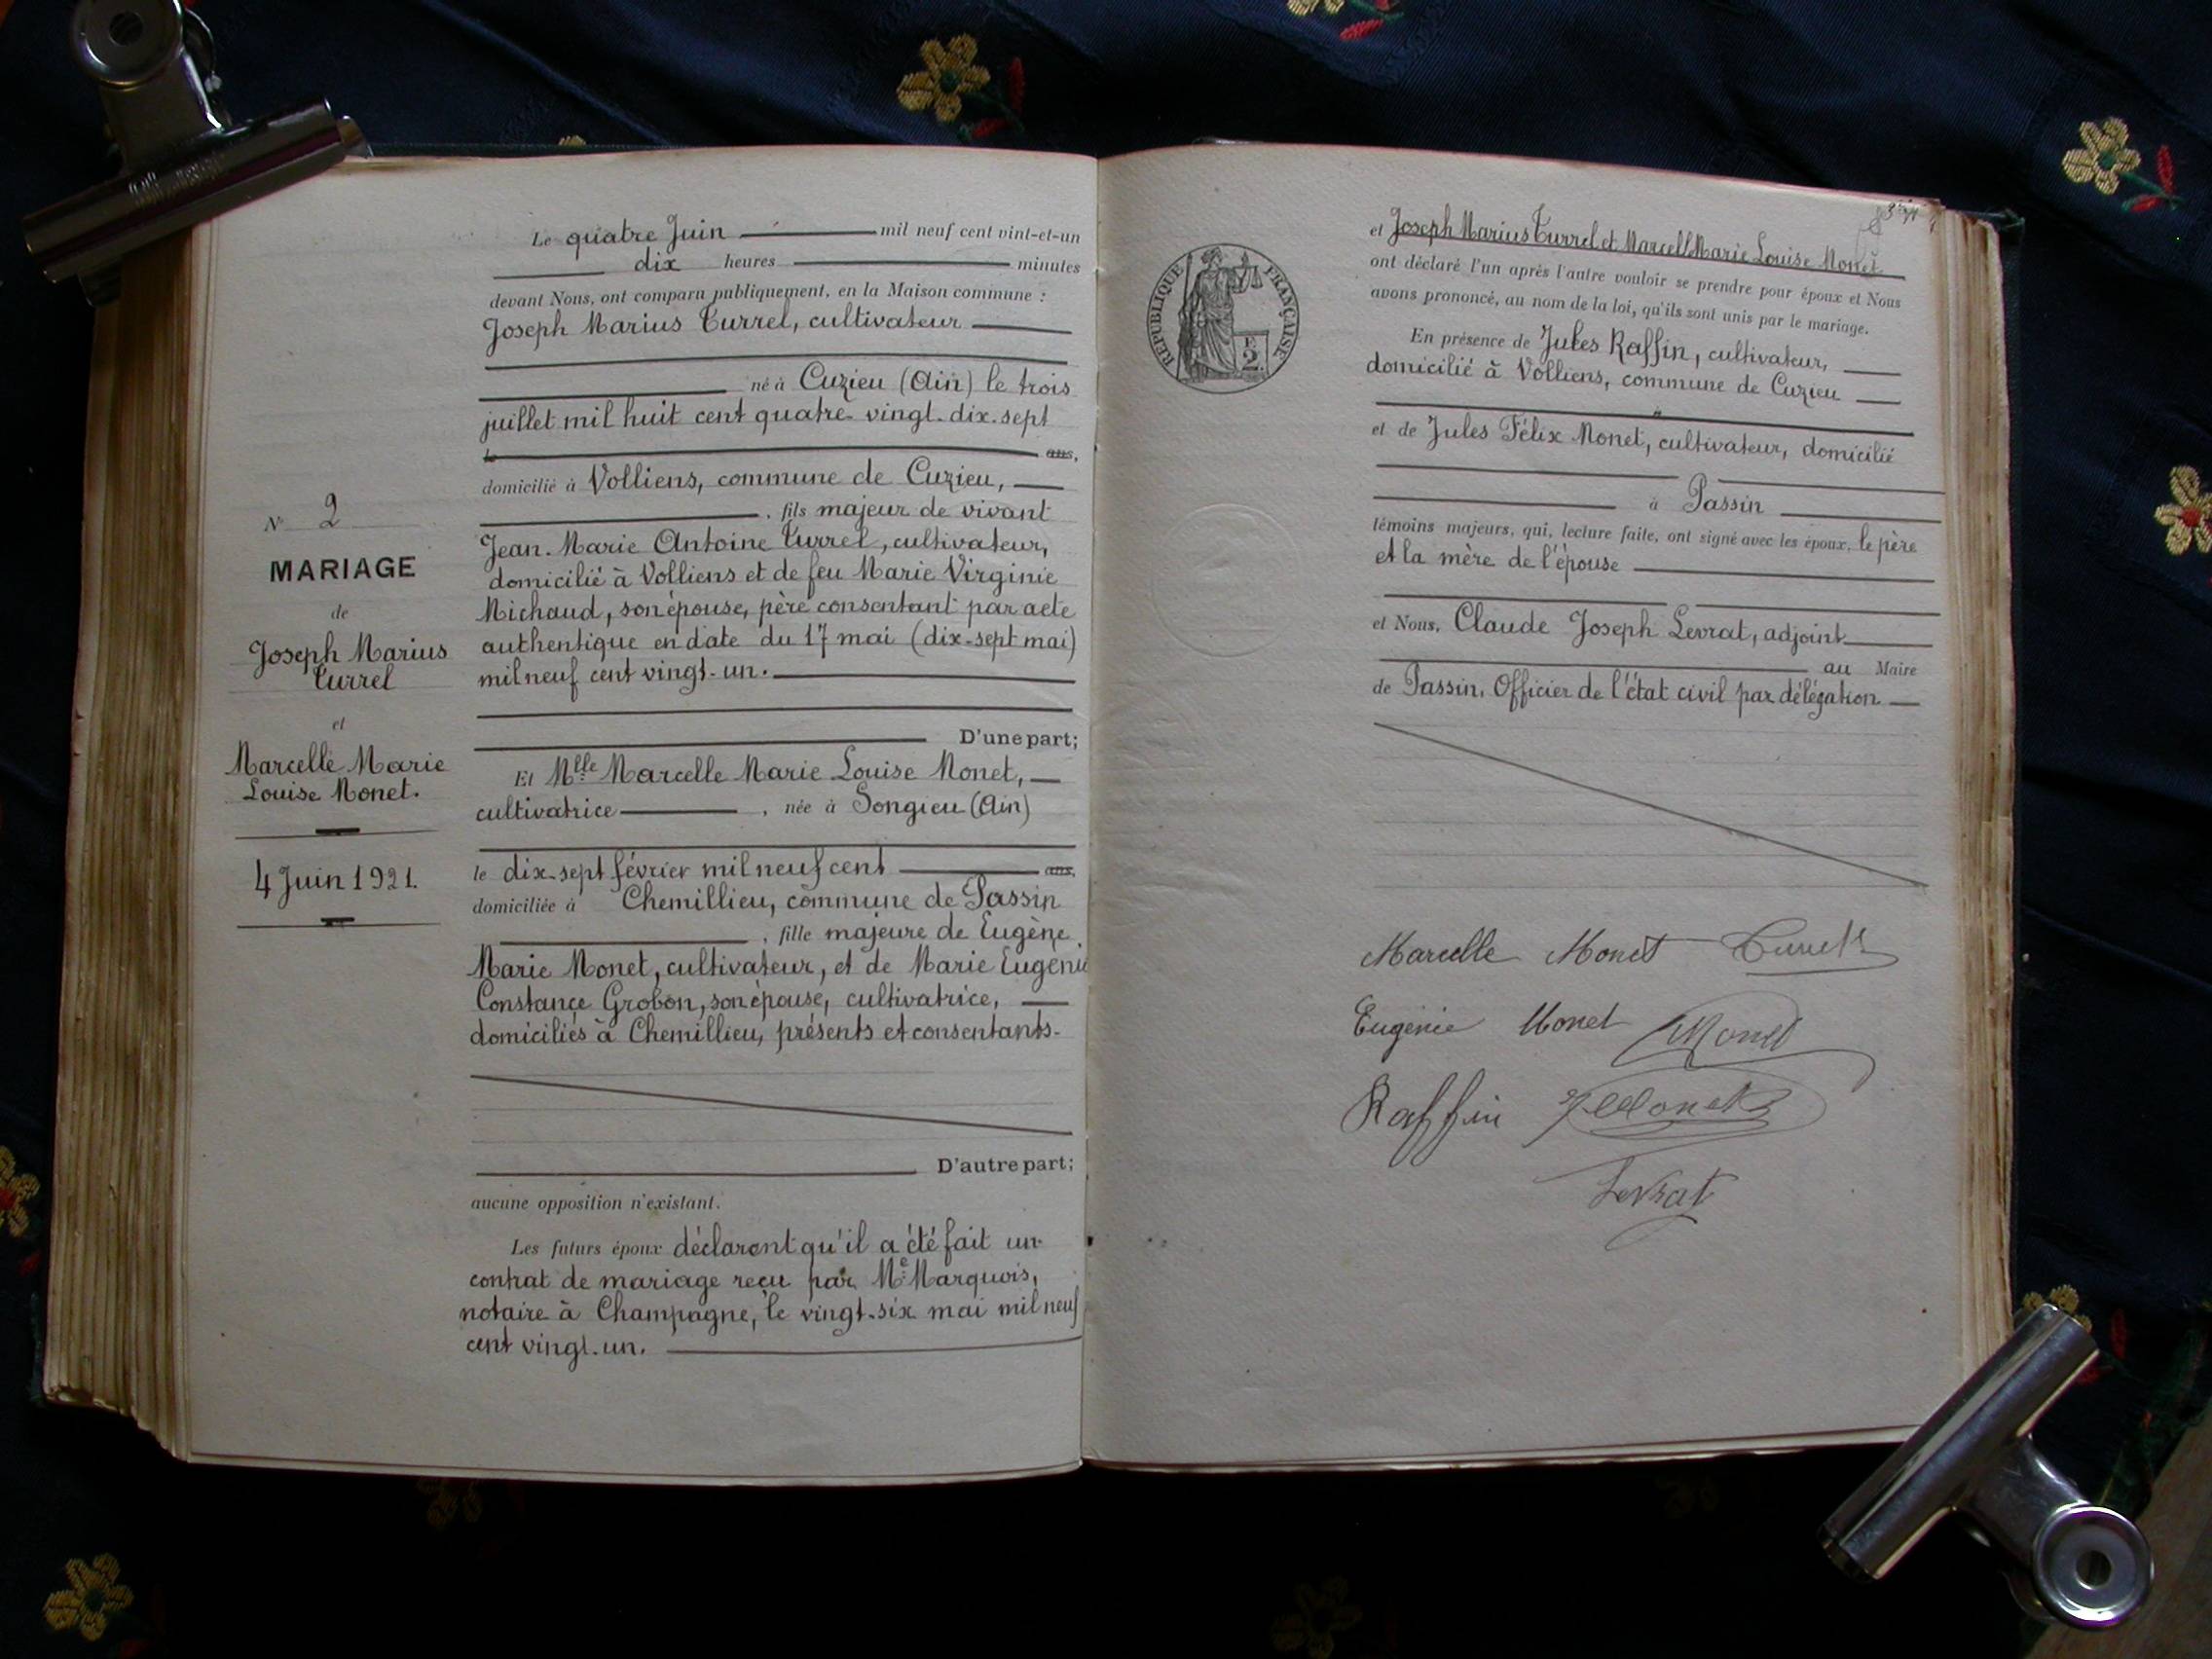 Le quatre Juin mil neuf cent vint-et-un
dix heures minutes
devant Nous, ont comparu publiquement, en la Maison commune :
Joseph Marius Turrel, cultivateur
né à Cuzieu (Ain) le trois
juillet mil huit cent quatre-vingt-dix-sept
ans,
domicilié à Volliens, commune de Cuzieu,
, fils majeur de vivant
Jean-Marie Antoine Turrel, cultivateur,
domicilié à Volliens et de feu Marie Virginie
Michaud, son épouse, père consentant par acte
authentique en date du 17 mai (dix-sept mai)
mil neuf cent vingt-un.
D'une part;
Et Mlle Marcelle Marie Louise Monet,
cultivatrice , née à Songieu (Ain)
le dix-sept février mil neuf cent ans,
domiciliée à Chemillieu, commune de Passin
, fille majeure de Eugène
Marie Monet, cultivateur, et de Marie Eugénie
Constance Grobon, son épouse, cultivatrice,
domiciliés à Chemillieu, présents et consentants.
D'autre part;
aucune opposition n'existant.
Les futurs époux déclarent qu'il a été fait un
contrat de mariage reçu par Me Marquois,
notaire à Champagne, le vingt-six mai mil neuf
cent vingt-un.
N° 2
MARIAGE
de
Joseph Marius
Turrel
et
Marcelle Marie
Louise Monet.
4 Juin 1921.
et Joseph Marius Turrel et Marcell Marie Louise Monet
ont déclaré l'un après l'autre vouloir se prendre pour époux et Nous
avons prononcé, au nom de la loi, qu'ils sont unis par le mariage.
En présence de Jules Raffin, cultivateur,
domicilié à Volliens, commune de Cuzieu
et de Jules Félix Monet, cultivateur, domicilié
à Passin
témoins majeurs, qui, lecture faite, ont signé avec les époux, le père
et la mère de l'épouse
et Nous, Claude Joseph Levrat, adjoint
au Maire
de Passin, Officier de l'état civil par délégation
RÉPUBLIQUE FRANÇAISE
2
Marcelle Monet Turrel
Eugénie Monet Monet
Raffin J Monet
Levrat